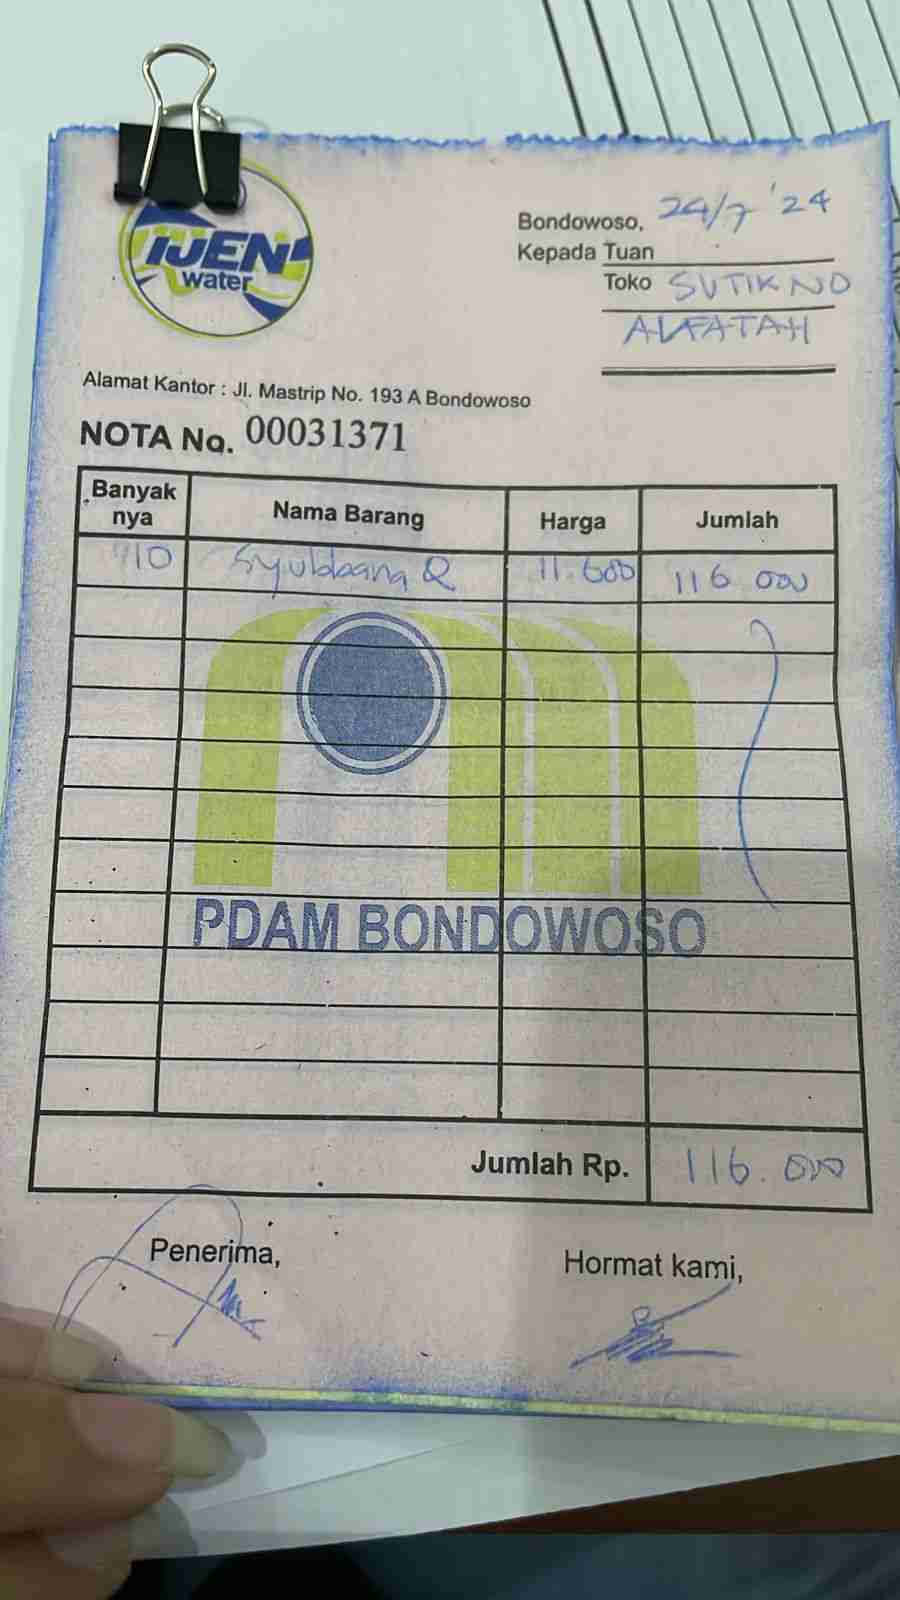 IJEN
water
Bondowoso, 24/7 '24
Kepada Tuan
Toko SUTIKNO
ALFATAH
Alamat Kantor : Jl. Mastrip No. 193 A Bondowoso
NOTA No. 00031371
Banyak nya Nama Barang Harga Jumlah
10 11.600 116 000
PDAM BONDOWOSO
Jumlah Rp. 116.000
Penerima, Hormat kami,